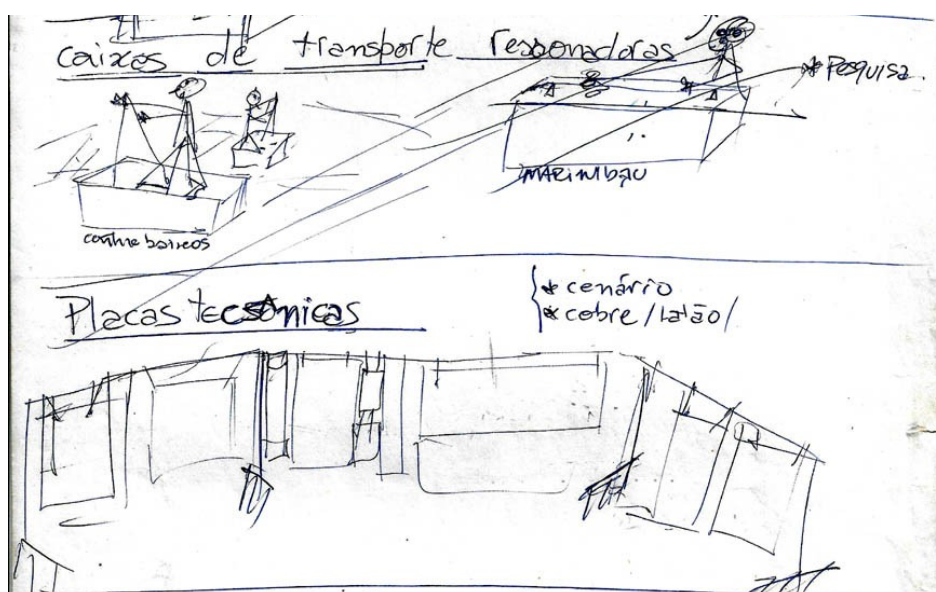 caixas de transporte ressonadoras
* Pesquisa.
MARIMBAU
Placas tectônicas
* cenário
* cobre / latão /